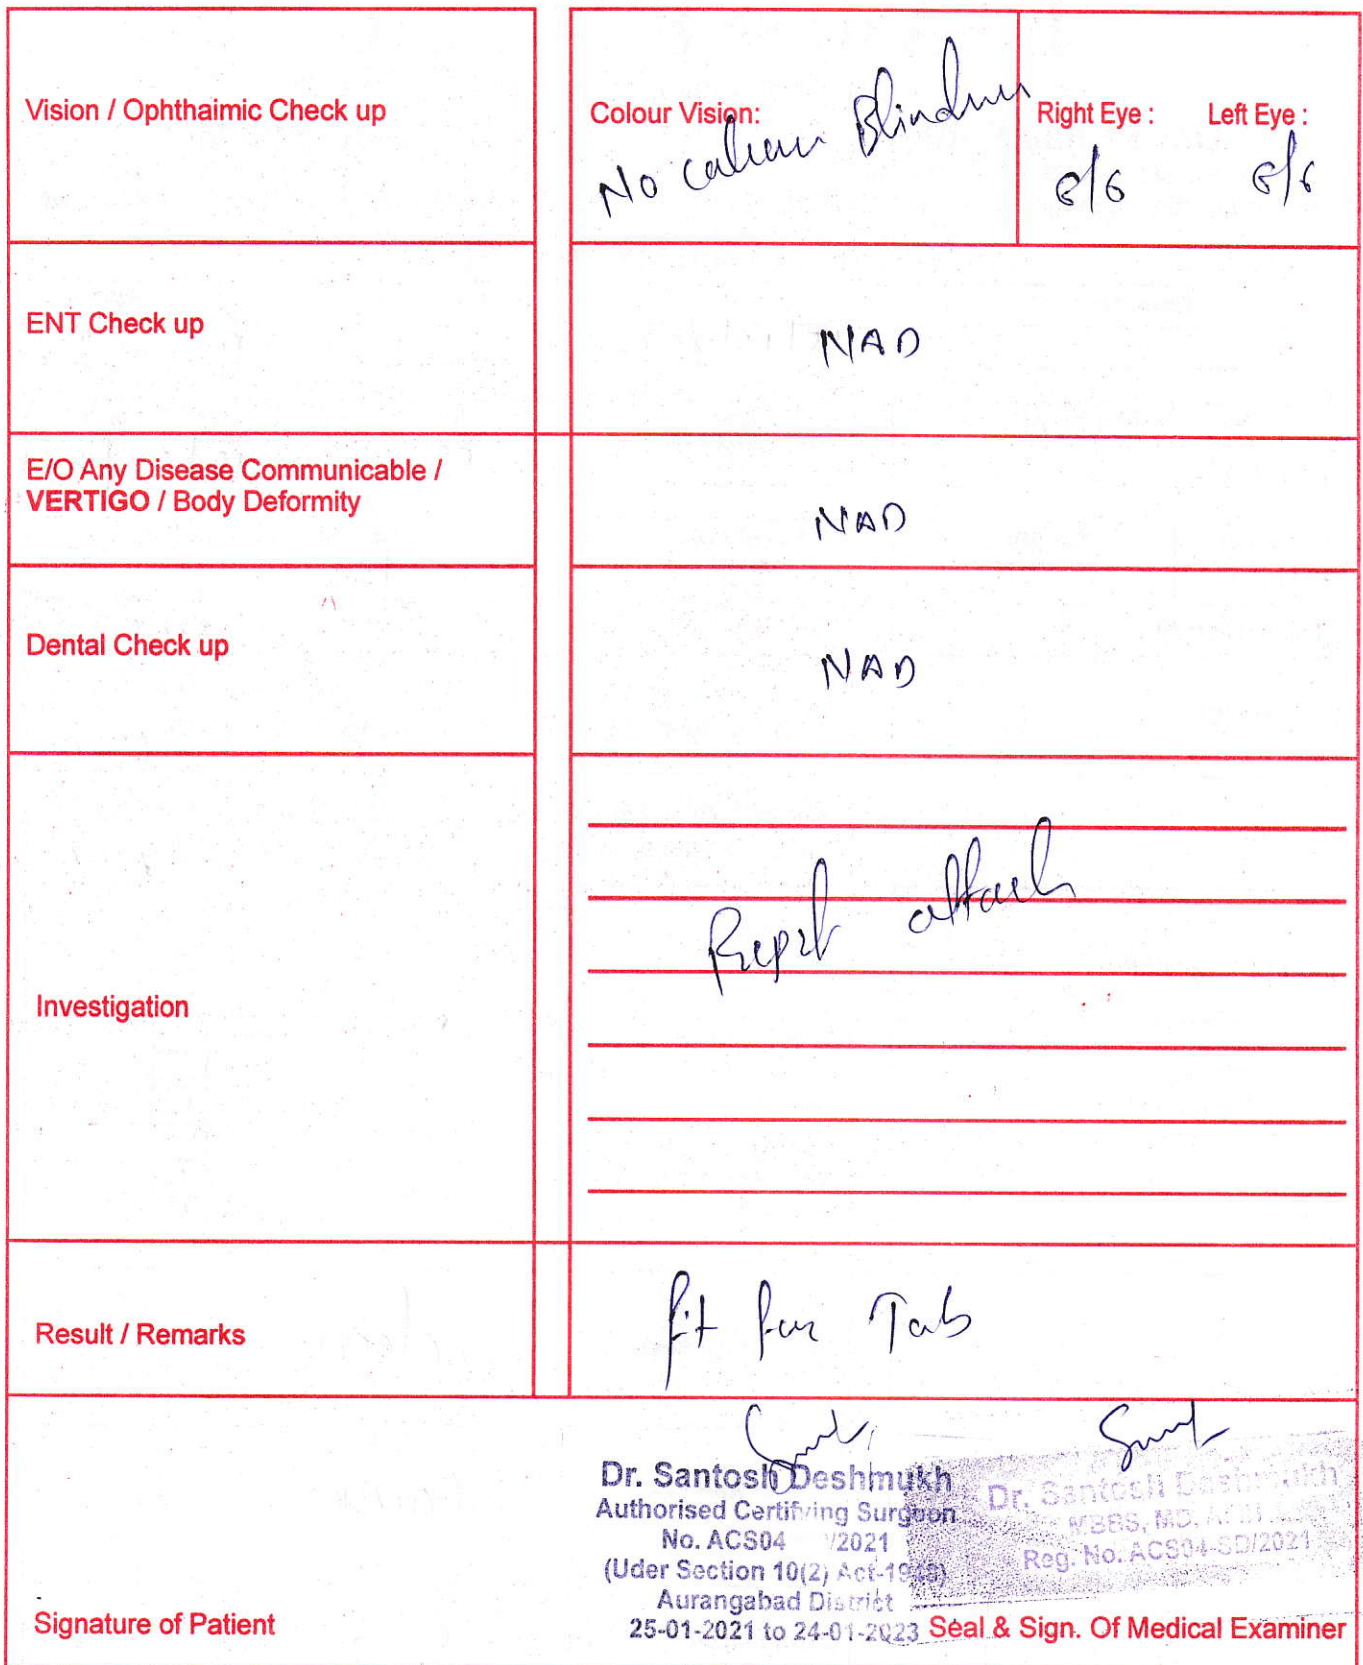 Vision / Ophthaimic Check up
Colour Vision: Right Eye : Left Eye :
No colour Blindness
6/6 6/6
ENT Check up
NAD
E/O Any Disease Communicable /
VERTIGO / Body Deformity
NAD
Dental Check up
NAD
Investigation
Report attach
Result / Remarks
fit for
Dr. Santosh Deshmukh
Authorised Certifying Surgeon
No. ACS04 /2021
(Uder Section 10(2) Act-1948)
Aurangabad District
25-01-2021 to 24-01-2023
Dr. Santosh Deshmukh
MBBS, MD,
Reg. No. ACS04-SD/2021
Signature of Patient
Seal & Sign. Of Medical Examiner